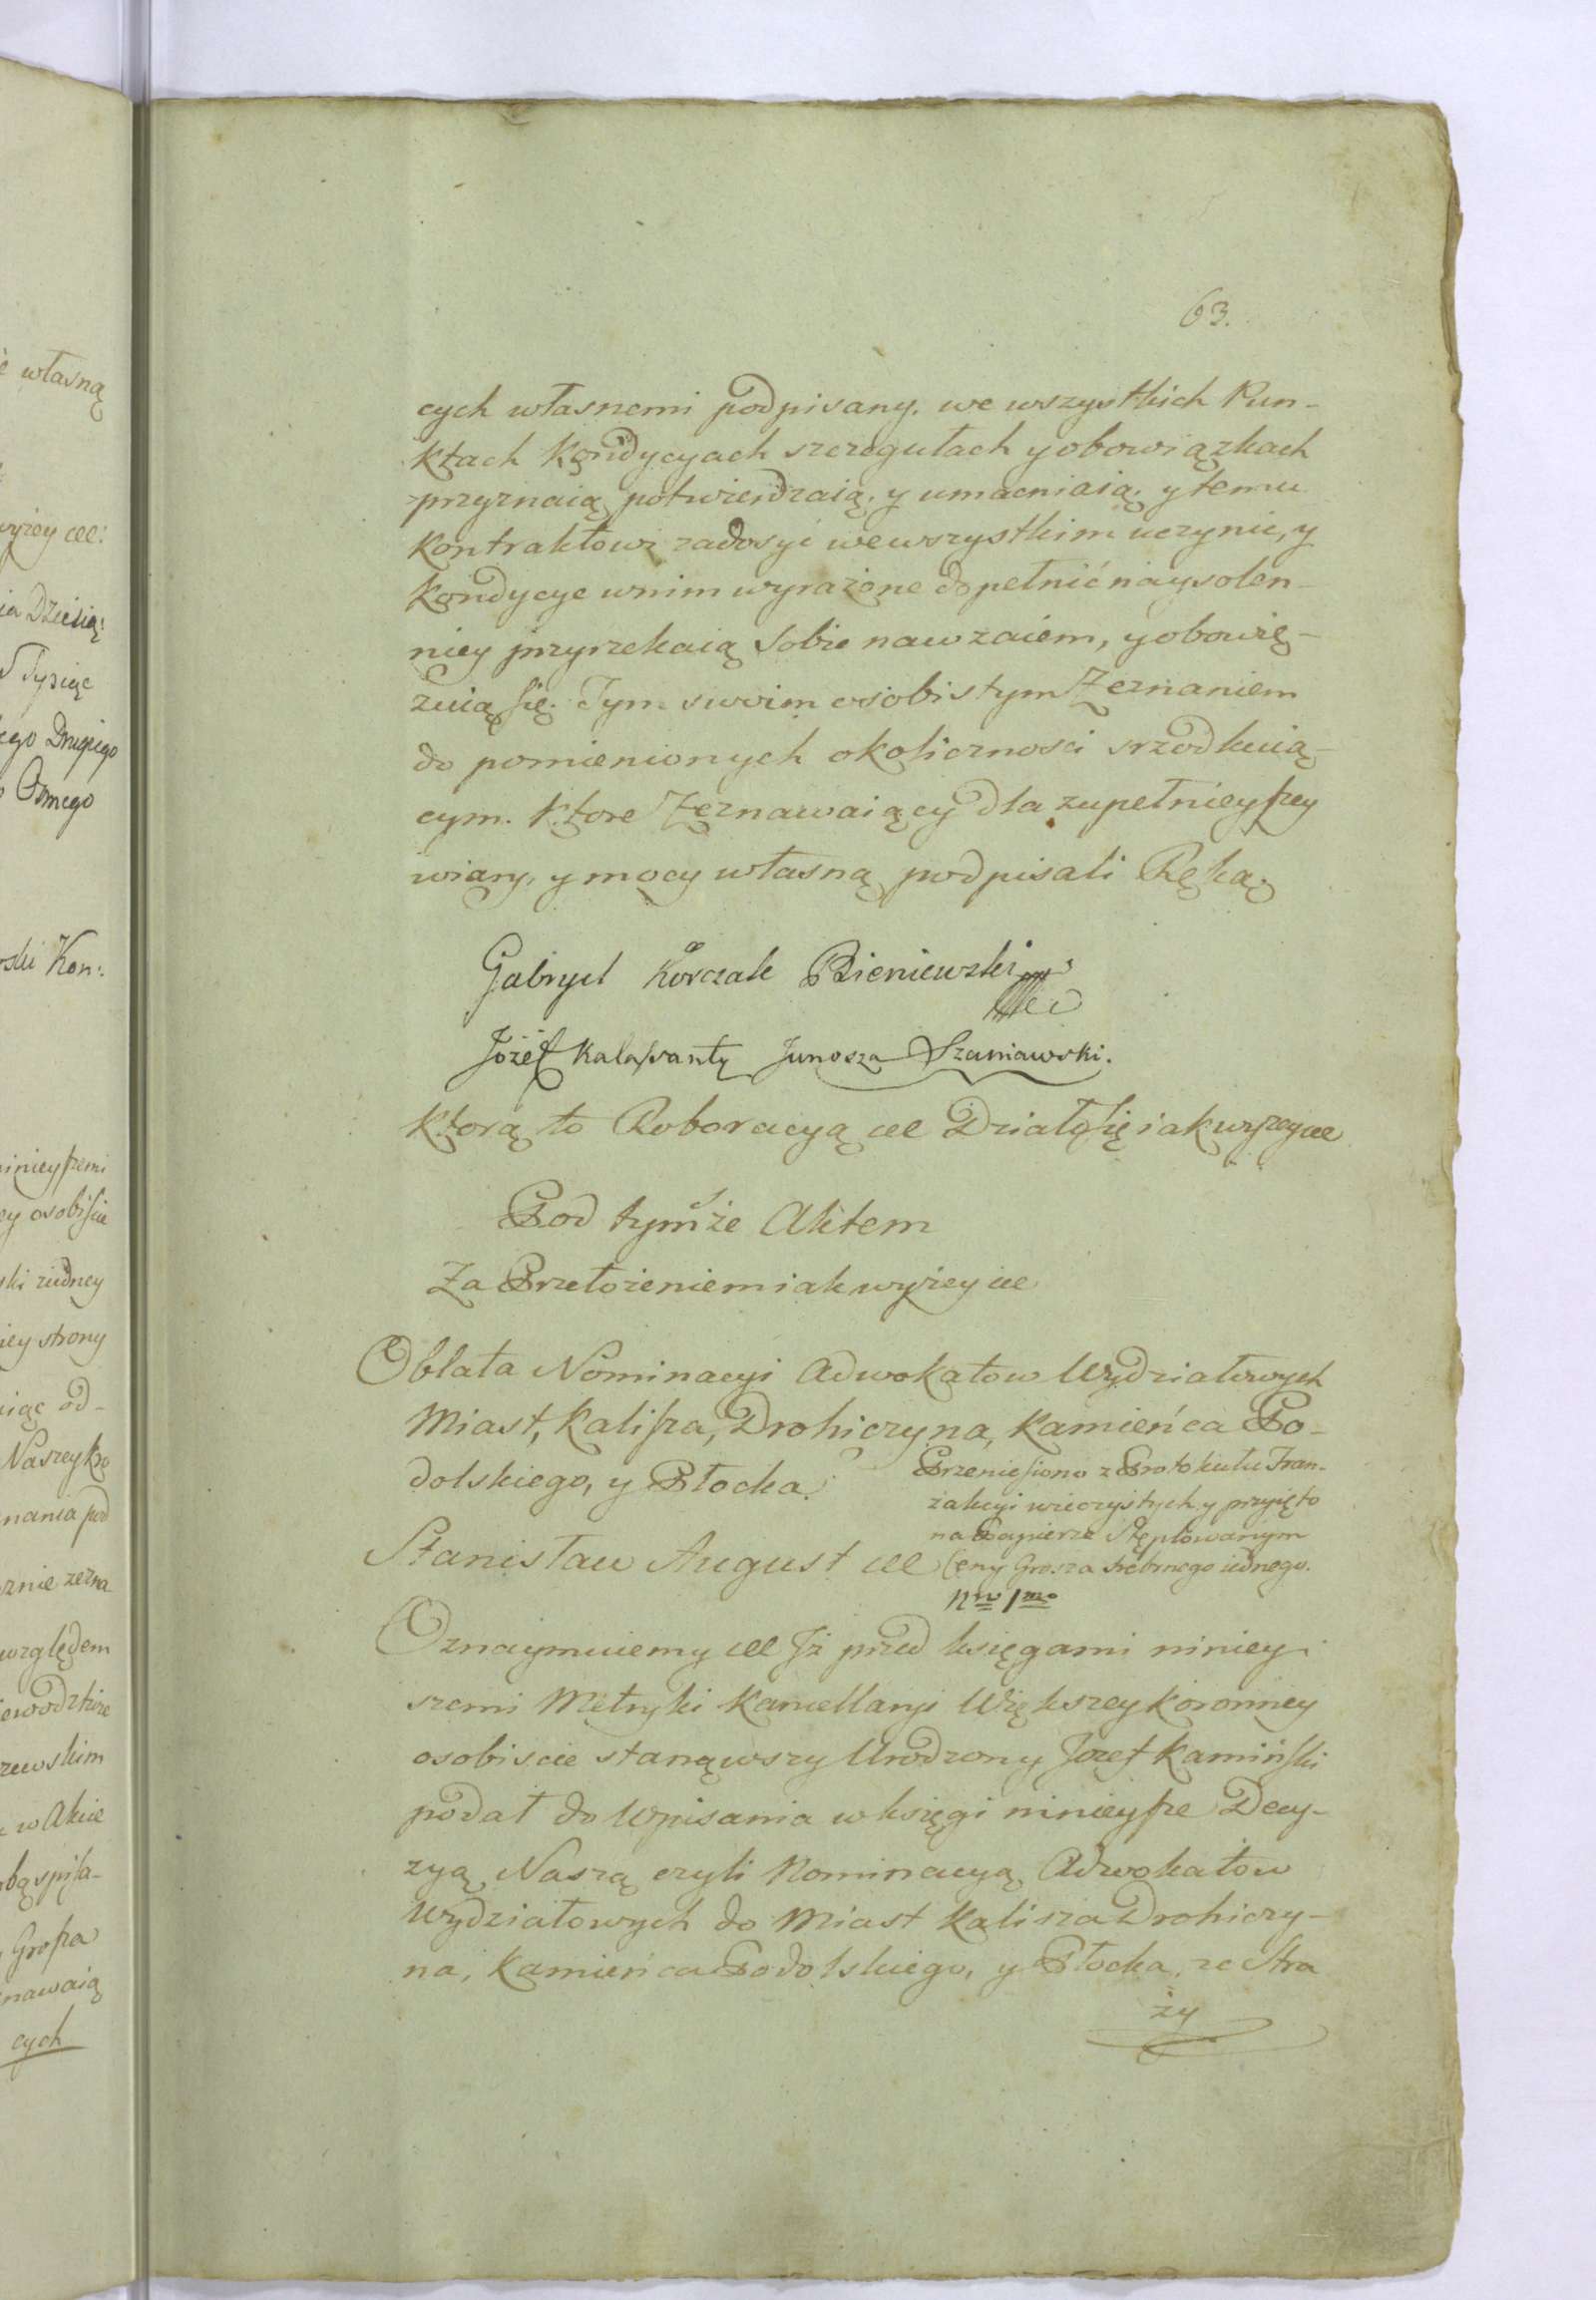 63.
cych własnemi podpisany, we wszystkich Pun-
ktach Kondycyach szczegułach y obowiązkach
przyznaią potwierdzaią, y umacniaią, y temu
Kontraktowi zadosyć we wszystkim uczynic, y
Kondycye w nim wyrażone dopełnić naysolen-
niey przyrzekaią Sobie nawzaiem, y obowię-
zuią się. Tym swoim osobistym Zeznaniem
do pomienionych okolicznosci srzodkuią-
cym. Ktore Zeznawaiący dla zupełnieyszey
wiary, y mocy własną podpisali Ręką.
Gabryel Korczak Bieniewski
Józef Kalassanty Junosza Szaniawski.
Ktorą to Roboracyą etc Działo się iak wyzey etc
Pod tymże Aktem
Za Przełożeniem iak wyżey etc
Oblata Nominacyi Adwokatow Wydziałowych
Miast, Kalisza, Drohiczyna, Kamieńca Po-
dolskiego, y Płocka.
Przeniesiono z Protokułu Tran-
zakcyi wieczystych y przyięto
na Papierze Stęplowanym
Ceny Grosza srebrnego iednego.
Nro 1mo
Stanisław August etc
Oznaymuiemy etc Iż przed księgami niniey-
szemi Metryki Kancellaryi Większey Koronney
osobiscie stanąwszy Urodzony Jozef Kamiński
podał do Wpisania w księgi ninieysze Decy-
zyą Naszą czyli Nominacyą Adwokatow
Wydziałowych do Miast Kalisza Drohiczy-
na, Kamieńca Podolskiego, y Płocka, ze Stra
ży